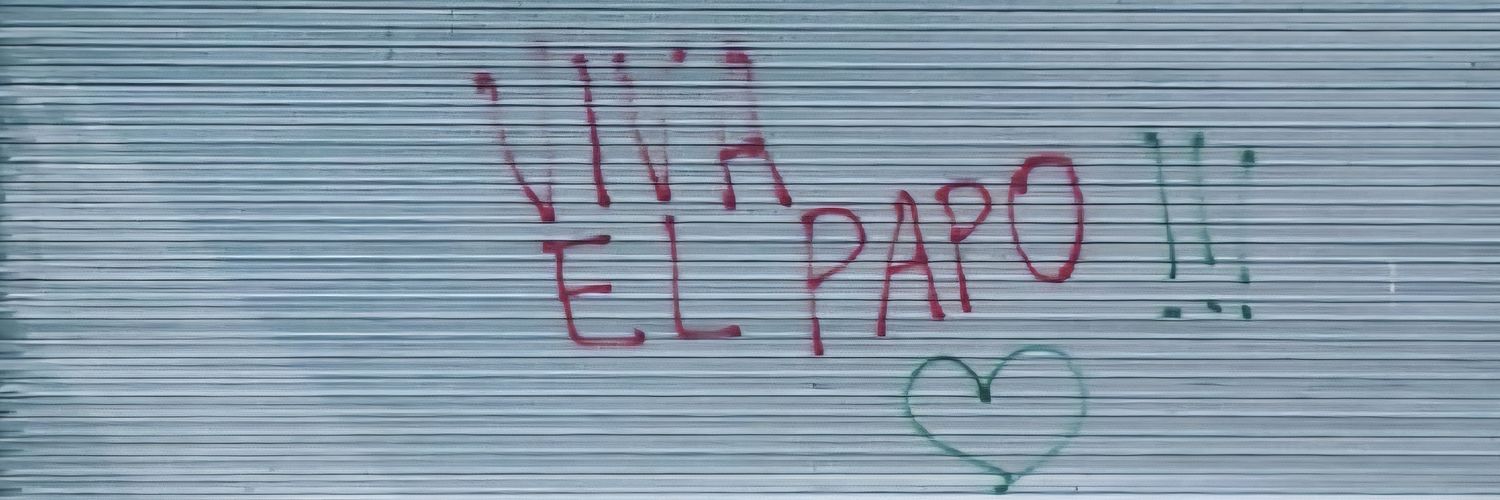 VIVA
EL PAPO !!!